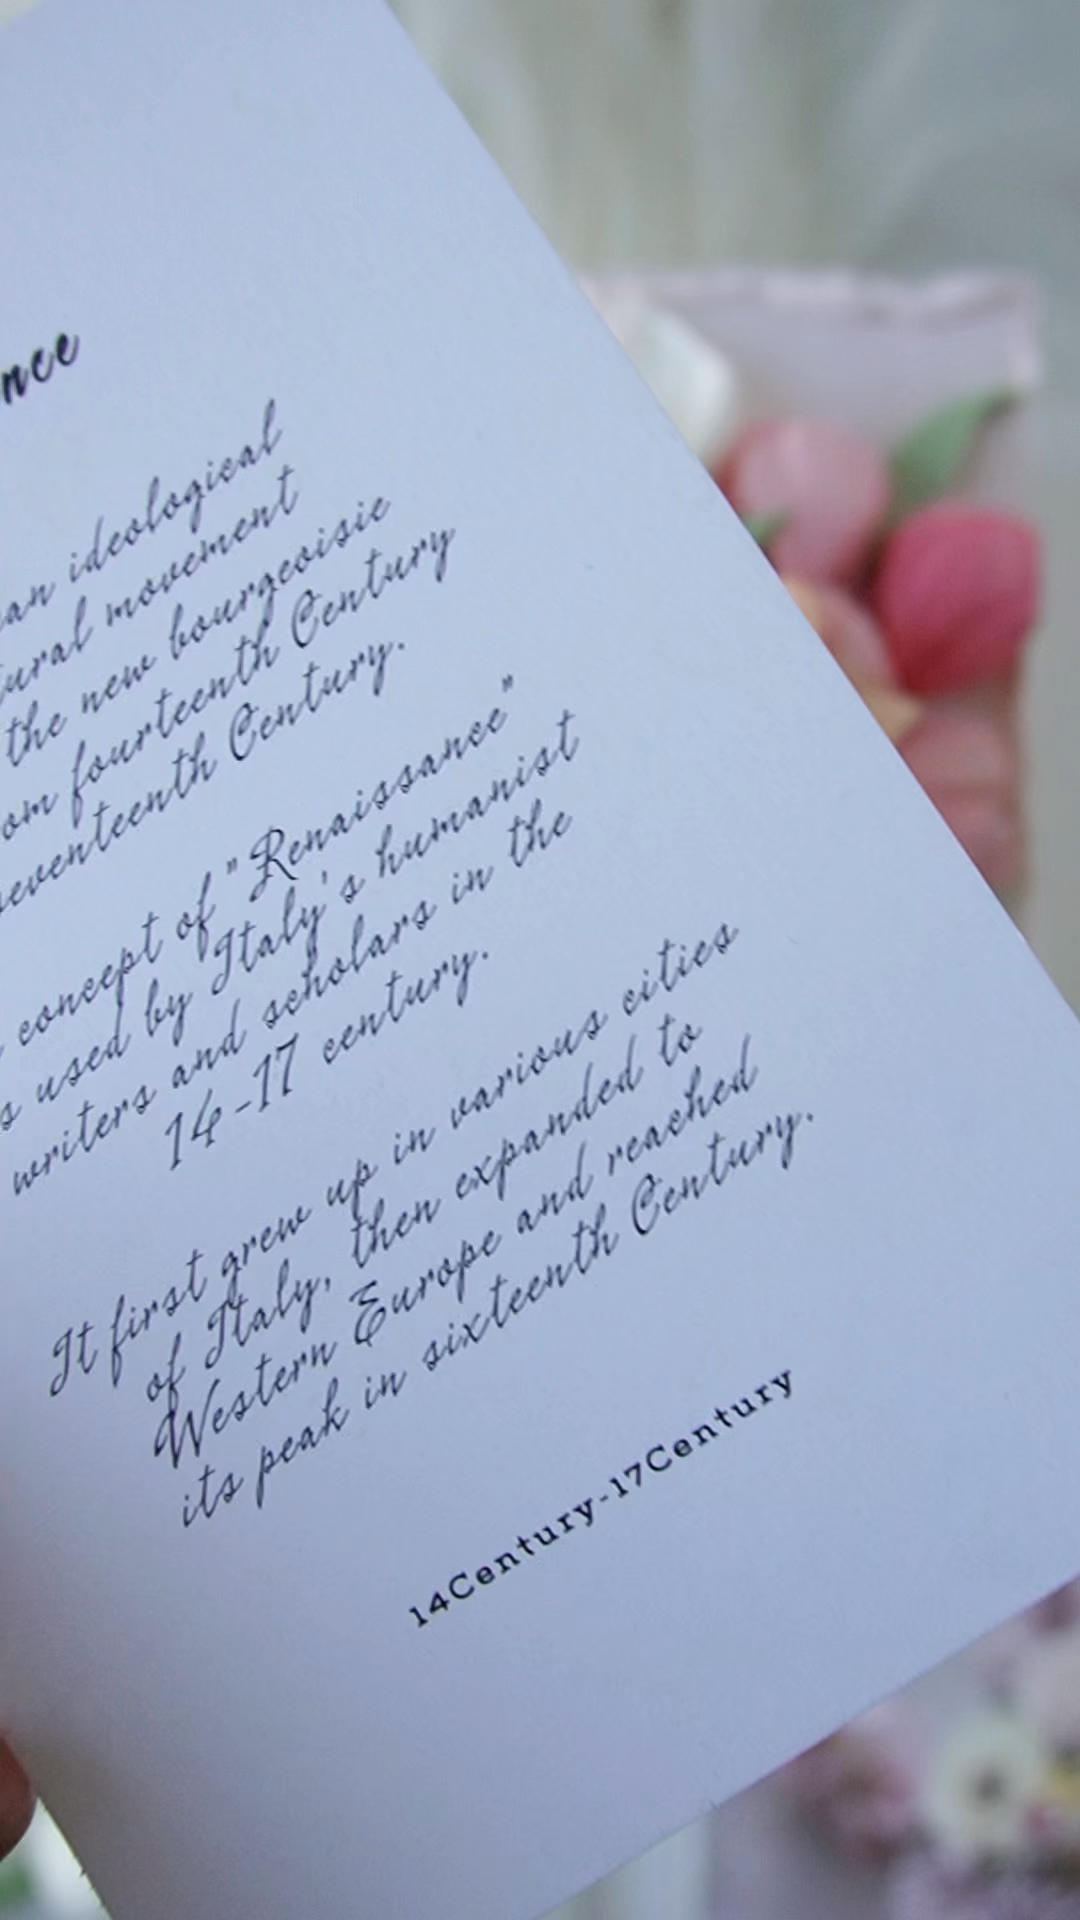 nce
an ideological
ural movement
the new bourgeoisie
om fourteenth Century
seventeenth Century.
concept of "Renaissance"
s used by Italy's humanist
writers and scholars in the
14-17 century.
It first grew up in various cities
of Italy, then expanded to
Western Europe and reached
its peak in sixteenth Century.
14Century-17Century